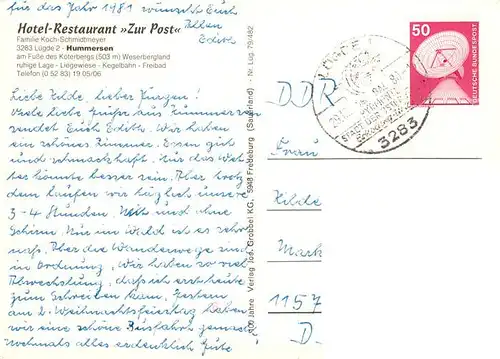 für das Jahr 1981 wünscht Euch
Allen
Edith
Hotel-Restaurant »Zur Post«
Familie Koch-Schmidtmeyer
3283 Lügde 2 - Hummersen
am Fuße des Köterbergs (503 m) Weserbergland
ruhige Lage - Liegewiese - Kegelbahn - Freibad
Telefon (0 52 83) 19 05/06
Liebe Hilde, lieber Jürgen!
Viele liebe Grüße aus Hummersen
sendet Euch Edith. Wir haben
ein schönes Zimmer. Essen gut
und schmackhaft. Nur das Wet-
ter könnte besser sein. Aber trotz
dem laufen wir täglich unsere
3-4 Stunden. Mit und ohne
Schirm. Nur im Wald ist es sehr
naß. Aber die Wanderwege sind
in Ordnung. Wir haben so viel
Abwechslung, daß ich erst heute
zum Schreiben kam. Gestern
am 2. Weihnachtsfeiertag haben
wir eine schöne Busfahrt gemacht
nochmals alles erdenklich Gute
Verlag Jos. Grobbel KG, 5948 Fredeburg (Sauerland) · Nr. Lüg. 79/482
50
DEUTSCHE BUNDESPOST
LÜGDE 1
3283
DDR
Frau
Hilde
Mark
1157
D.